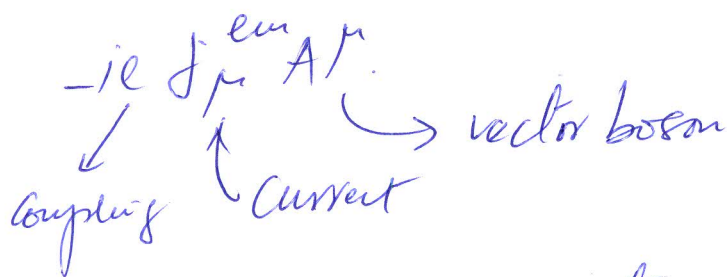 -ie j_μ^em A^μ.
vector boson
coupling
Current